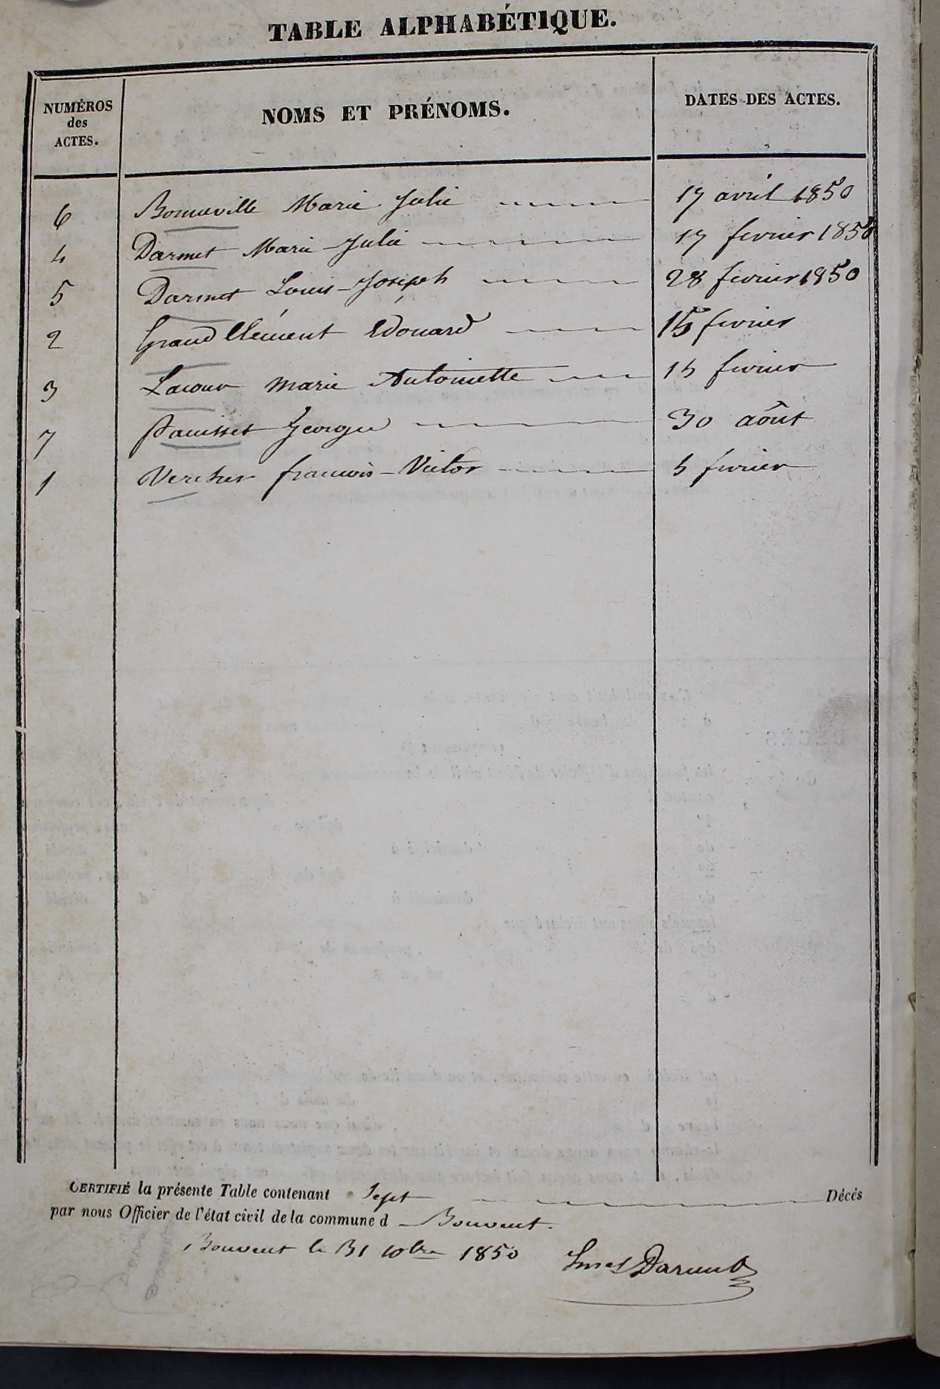 TABLE ALPHABÉTIQUE.
NUMÉROS des ACTES. NOMS ET PRÉNOMS. DATES DES ACTES.
6 Bonneville Marie Julie 17 avril 1850
4 Darmet Marie-Julie 17 fevrier 1850
5 Darmet Louis-Joseph 28 fevrier 1850
2 Grand Clément Edouard 15 fevrier
3 Lacour Marie Antoinette 15 fevrier
7 Pauisset George 30 aôut
1 Vercher francois-Victor 5 fevrier
CERTIFIÉ la présente Table contenant Sept Décès
par nous Officier de l'état civil de la commune d Bouvent.
Bouvent le 31 10bre 1850 Darmet